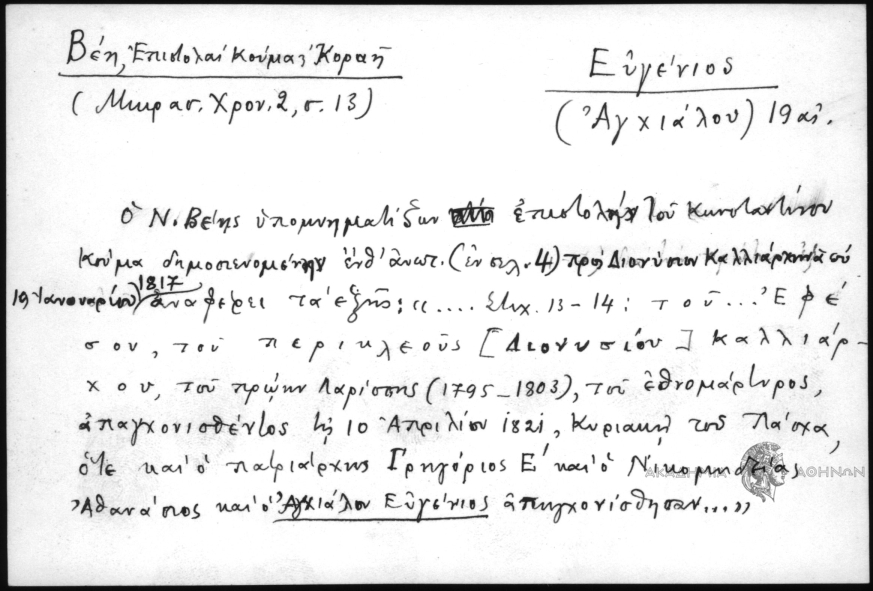 Βέη, Ἐπιστολαί Κούμα, Κοραῆ
(Μικρασ. Χρον. 2, σ. 13)
Εὐγένιος
(Ἀγχιάλου) 19 αἰ.
Ὁ Ν. Βέης ὑπομνηματίζων ἐπιστολήν τοῦ Κωνσταντίνου
Κούμα δημοσιευομένην ἐνθ' ἀνωτ. (ἐν σελ. 4) πρός Διονύσιον Καλλιάρχην ἀπό
19 Ἰανουαρίου 1817 ἀναφέρει τά ἑξῆς: «.... Στιχ. 13-14: τοῦ... Ἐφέ
σου, τοῦ περικλεοῦς [Διονυσίου] Καλλιάρ-
χου, τοῦ πρώην Λαρίσσης (1795-1803), τοῦ ἐθνομάρτυρος,
ἀπαγχονισθέντος τῇ 10 Ἀπριλίου 1821, Κυριακῇ τοῦ Πάσχα,
ὅτε καί ὁ πατριάρχης Γρηγόριος Ε' καί ὁ Νικομηδείας
Ἀθανάσιος καί ὁ Ἀγχιάλου Εὐγένιος ἀπηγχονίσθησαν...»
ΑΚΑΔΗΜΙΑ ΑΘΗΝΩΝ